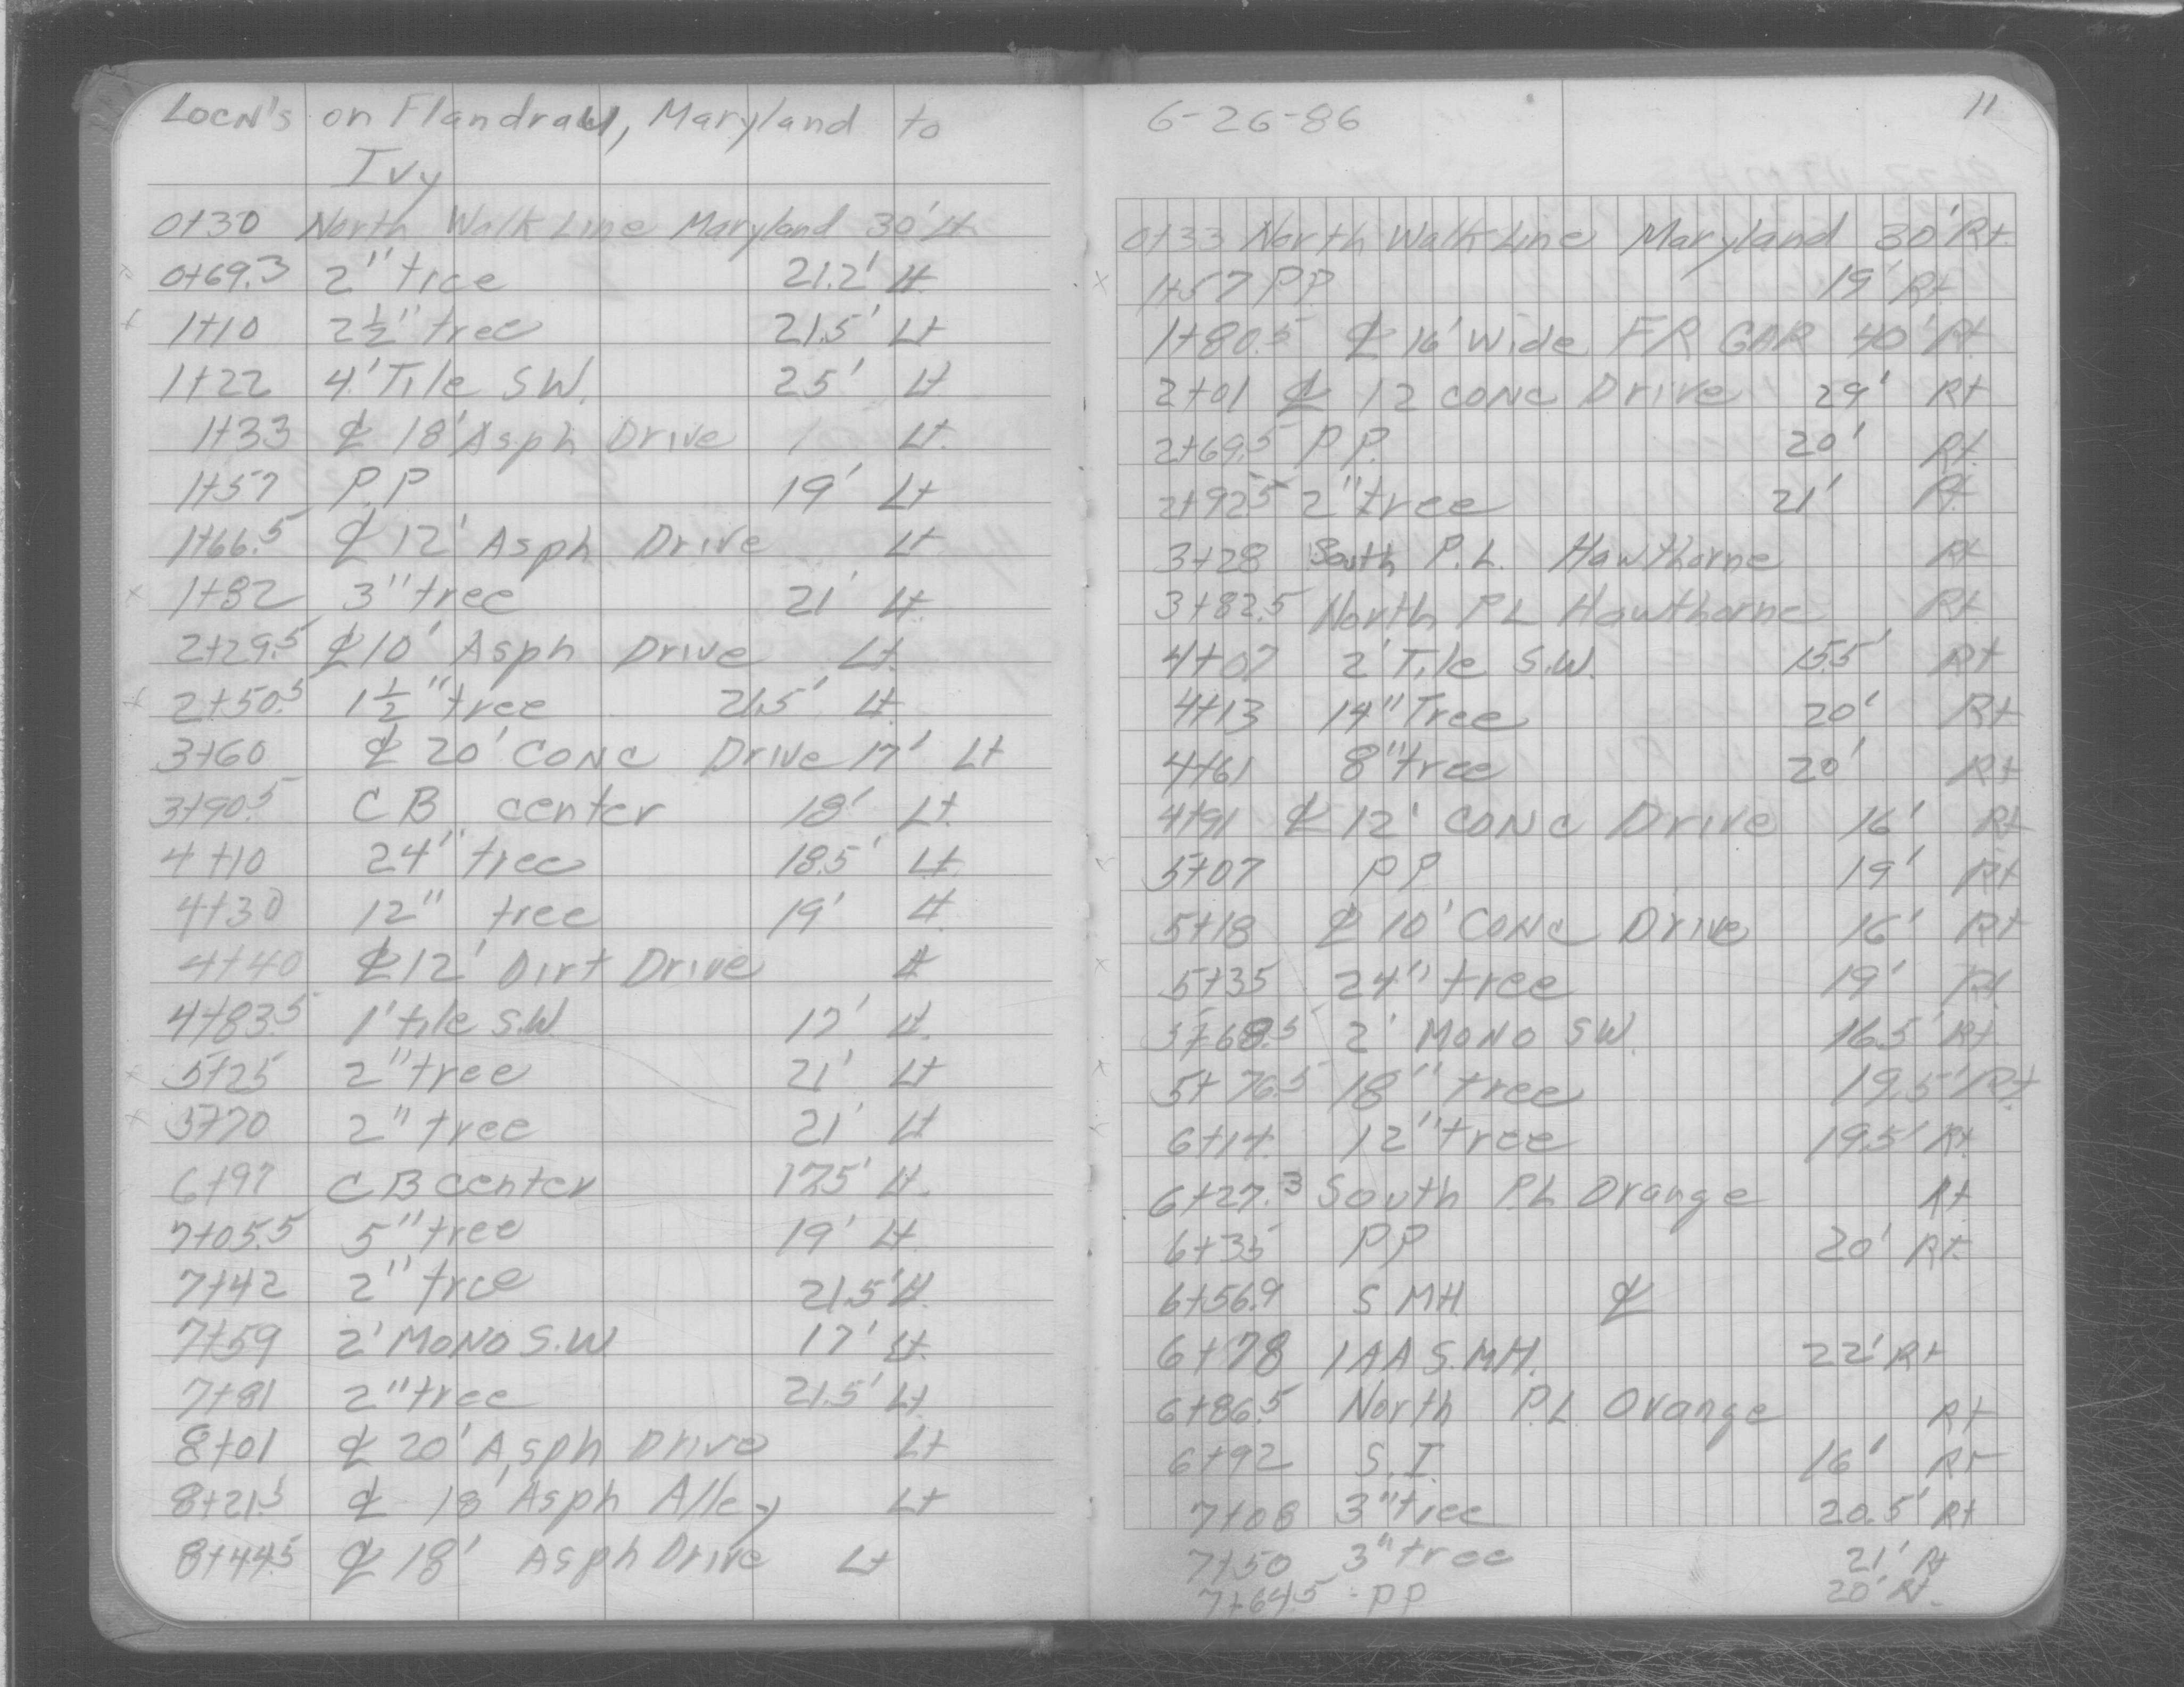 Locn's on Flandraw, Maryland to
Ivy
0+30 North Walk Line Maryland 30' Lt
0+69.3 2" tree 21.2' Lt
1+10 2½" tree 21.5' Lt
1+22 4' Tile S.W. 25' Lt
1+33 ℄ 18' Asph Drive Lt.
1+57 P.P 19' Lt
1+66.5 ℄ 12' Asph Drive Lt
1+82 3" tree 21' Lt.
2+29.5 ℄ 10' Asph Drive Lt.
2+50.5 1½" tree 21.5' Lt
3+60 ℄ 20' CONC Drive 17' Lt
3+90.5 CB center 18' Lt.
4+10 24" tree 18.5' Lt
4+30 12" tree 19' Lt
4+40 ℄ 12' Dirt Drive Lt
4+83.5 1' tile S.W 17' Lt.
5+25 2" tree 21' Lt
5+70 2" tree 21' Lt
6+97 CB center 17.5' Lt.
7+05.5 5" tree 19' Lt.
7+42 2" tree 21.5' Lt.
7+59 2' MONO S.W 17' Lt.
7+81 2" tree 21.5' Lt.
8+01 ℄ 20' Asph Drive Lt
8+21.5 ℄ 18' Asph Alley Lt
8+44.5 ℄ 18' Asph Drive Lt
6-26-86 11
0+33 North Walk Line Maryland 30' Rt.
1+57 P.P. 19' Rt
1+80.5 ℄ 16' Wide FR GAR 40' Rt
2+01 ℄ 12 CONC Drive 29' Rt
2+69.5 P.P. 20' Rt.
2+92.5 2" tree 21' Rt.
3+28 South P.L. Hawthorne Rt
3+82.5 North PL Hawthorne Rt.
4+07 2' Tile S.W. 15.5' Rt
4+13 14" Tree 20' Rt
4+61 8" tree 20' Rt
4+91 ℄ 12' CONC Drive 16' Rt
5+07 PP 19' Rt
5+18 ℄ 10' CONC Drive 16' Rt
5+35 24" tree 19' Rt
5+68.5 2' MONO SW. 16.5' Rt.
5+76.5 18" tree 19.5' Rt.
6+14 12" tree 19.5' Rt.
6+27.3 South P.L Orange Rt
6+35 PP 20' Rt.
6+56.9 S MH ℄
6+78 1AA S.MH. 22' Rt
6+86.5 North P.L Orange Rt
6+92 S.I. 16' Rt
7+08 3" tree 20.5' Rt
7+50 3" tree 21' Rt
7+64.5 PP 20' Rt.